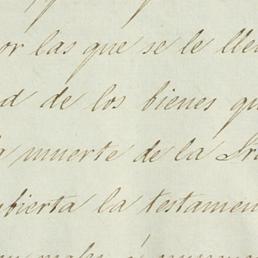 or las que se le lle
d de los bienes qu
a muerte de la Sra
bierta la testamen